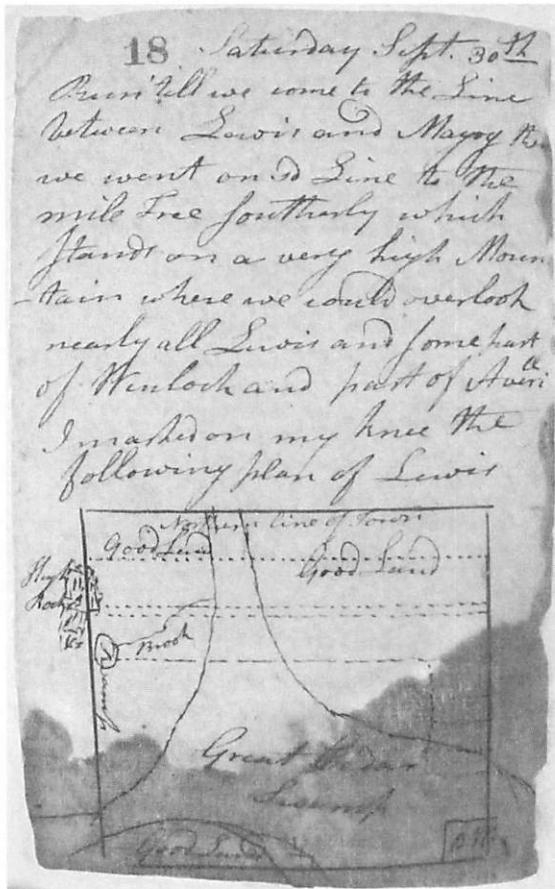 18 Saturday Sept. 30th
Run till we come to the Line
between Lewis and
we went on sd Line to the
mile Tree Southerly which
Stands on a very high Moun
-tain where we could overlook
nearly all Lewis and some part
of Wenlock and part of
I marked on my knee the
following plan of Lewis
Northern line of Town
Good Land
Good Land
High
Rock
Brook
Camp
Great Cedar
Swamp
Good Land